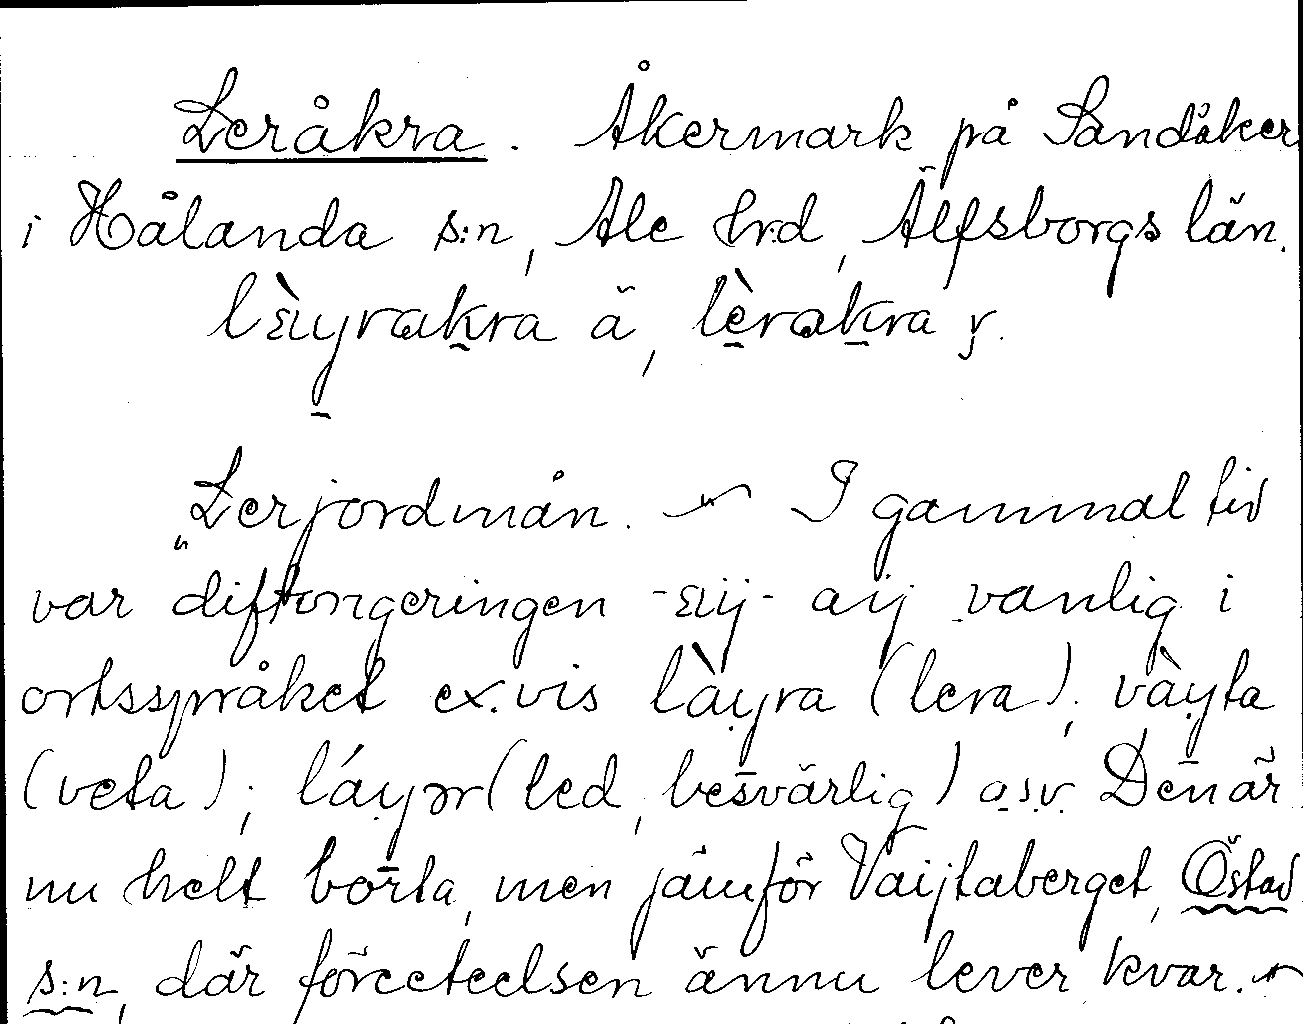 Leråkra. Åkermark på Sandåker
i Hålanda s:n, Ale hrd, Älfsborgs län.
lɛ̀iyrakra ä, lèrakra y.
"Lerjordmån. I gammal tid
var diftongeringen -εiy- aiy vanlig i
ortsspråket ex.vis làyra (lera), vàyta
(veta); láyər (led, besvärlig) o.s.v. Den är
nu helt borta, men jämför Vaijtaberget, Östad
s:n, där företeelsen ännu lever kvar.